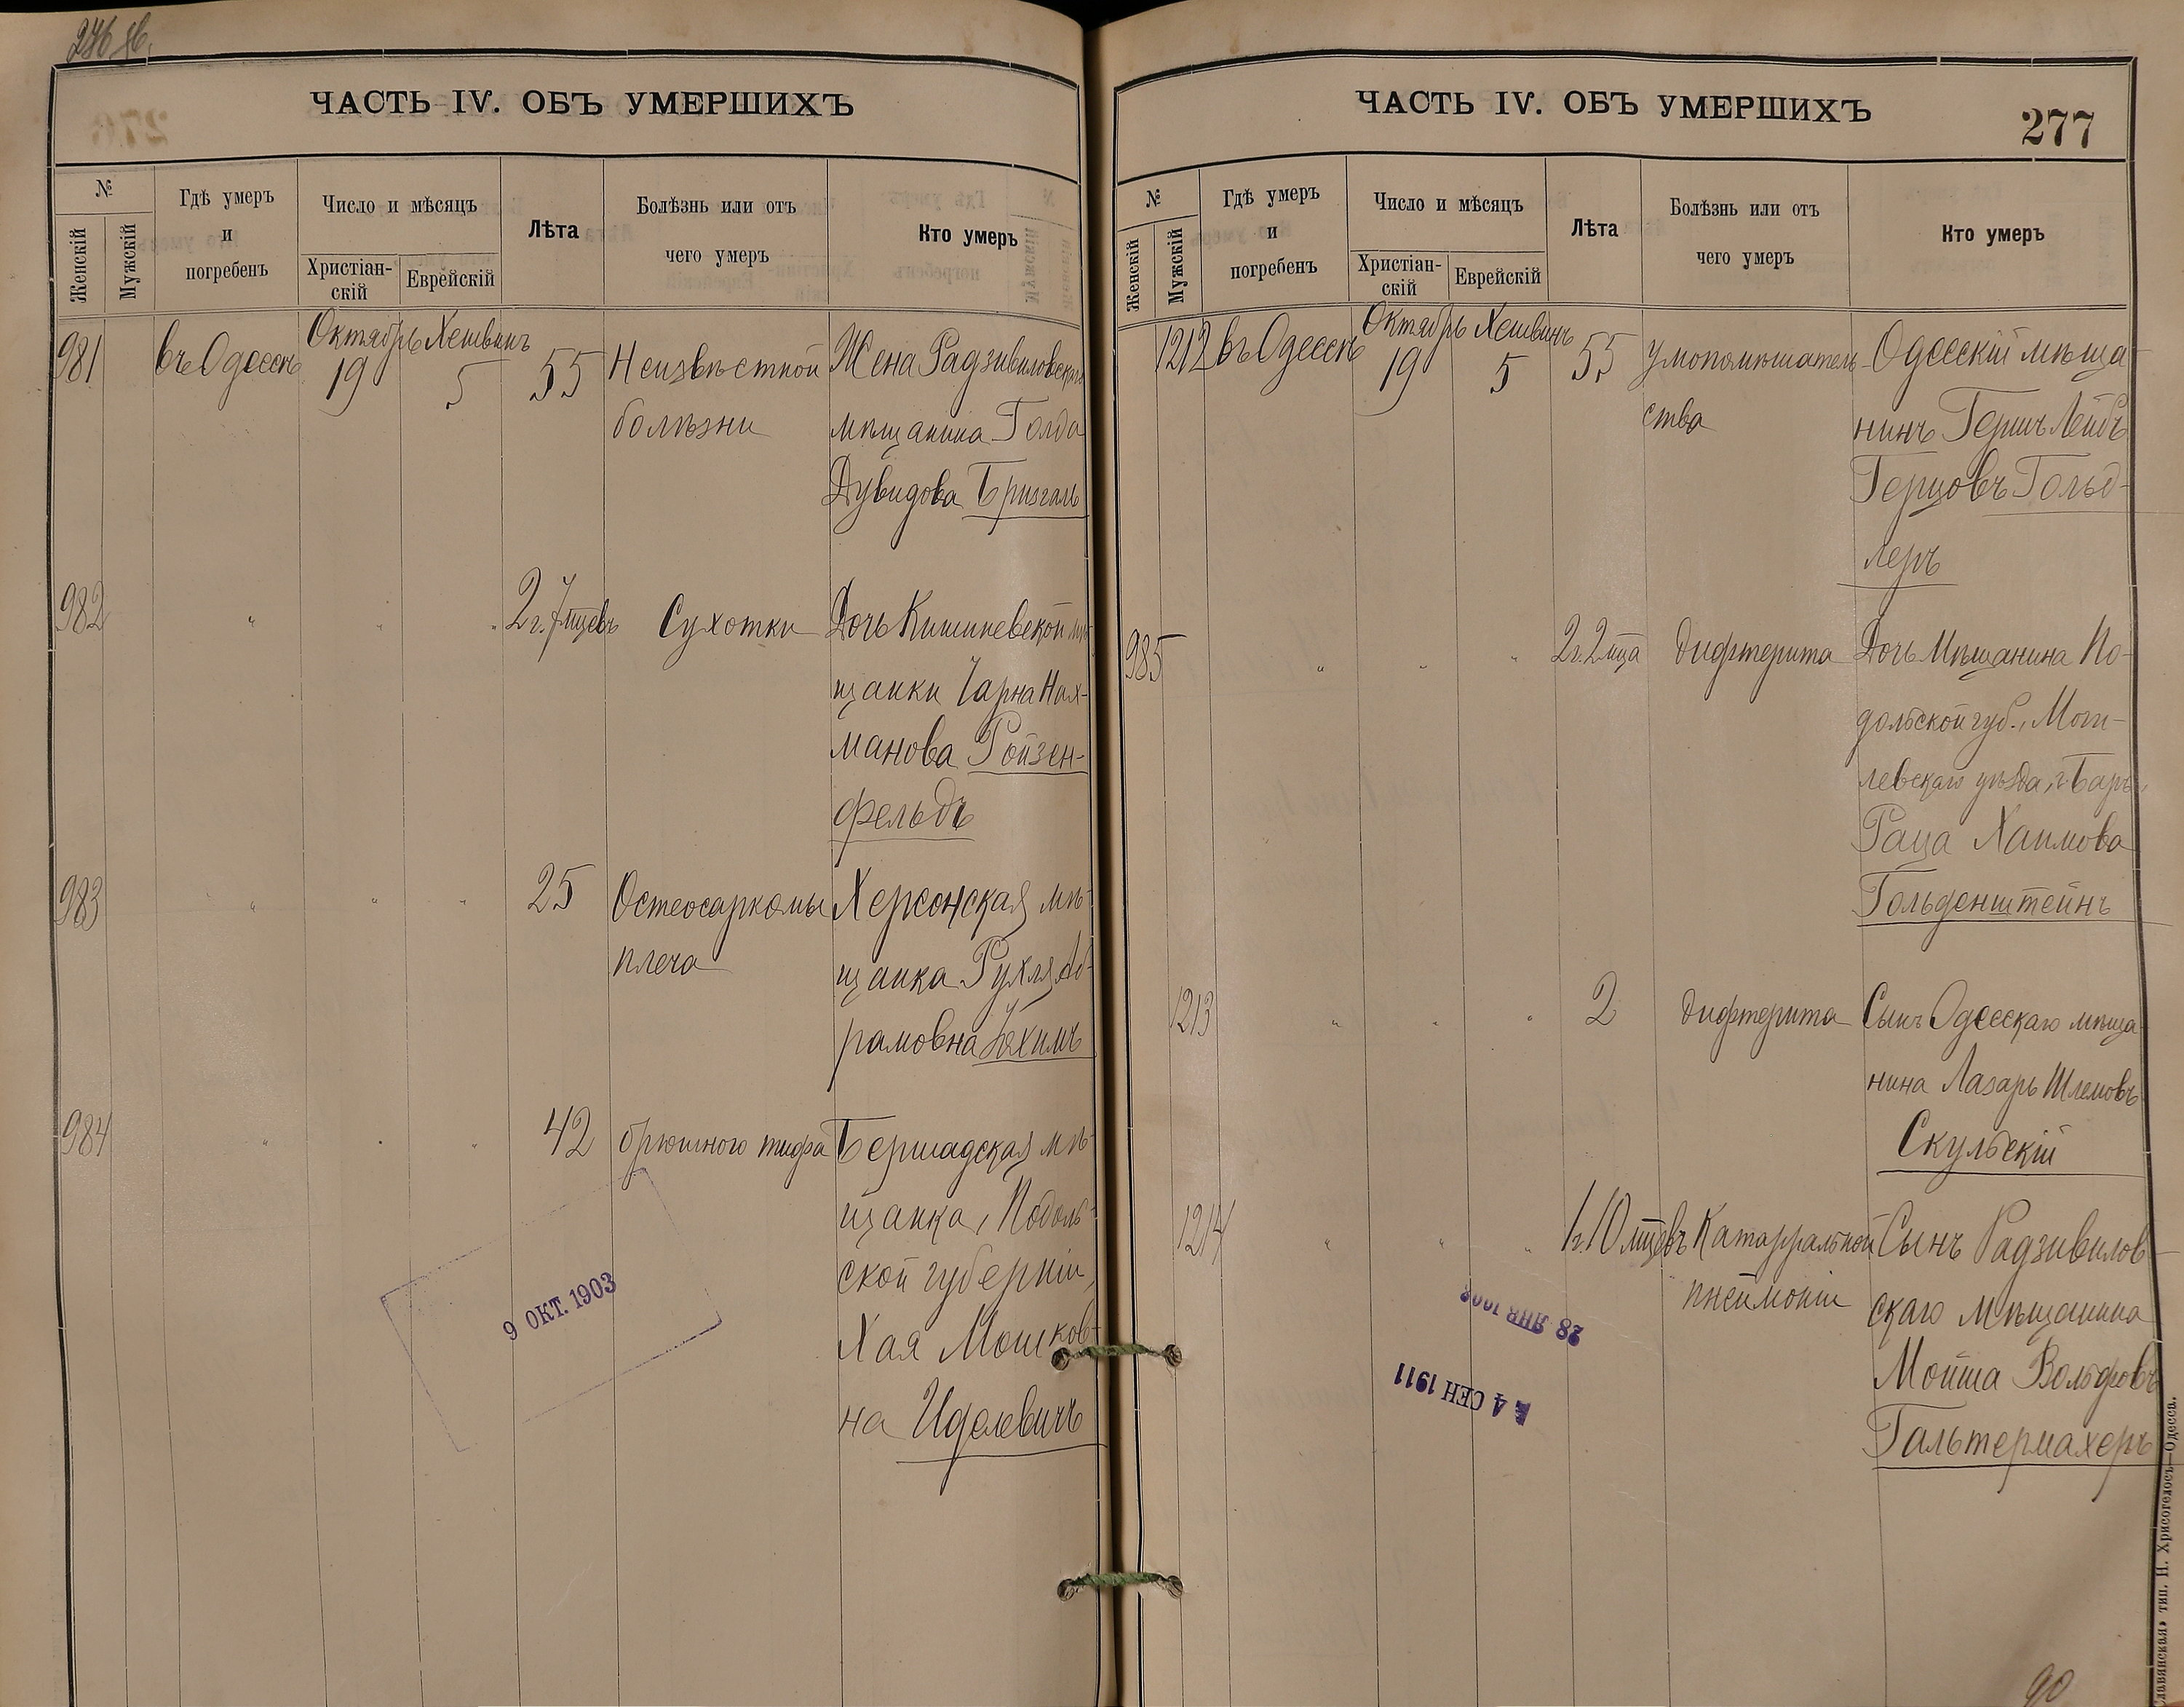 ЧАСТЬ IV. ОБЪ УМЕРШИХЪ
№
Женскій
Мужскій
Гдѣ умеръ
и
погребенъ
Число и мѣсяцъ
Христіан-
скій
Еврейскій
Лѣта
Болѣзнь или отъ
чего умеръ
Кто умеръ
981
въ Одессѣ
Октябрь
19
Хешвинъ
5
55
Неизвѣстной
болѣзни
Жена Радзивиловскаго
мѣщанина Голда
Дувидова Бризгаль
982
" " "
2 г. 7 мцевъ
Сухотки
Дочь Кишиневской мѣ-
щанки Чарна Нах-
манова Ройзен-
фельдъ
983
" " "
25
Остеосаркомы
плеча
Херсонская мѣ-
щанка Рухля Аб-
рамовна
984
" " "
42
брюшного тифа
Бершадская мѣ-
щанка, Подоль-
ской губерніи,
Хая Мошков-
на Иделевичъ
9 ОКТ. 1903
ЧАСТЬ IV. ОБЪ УМЕРШИХЪ
277
№
Женскій
Мужскій
Гдѣ умеръ
и
погребенъ
Число и мѣсяцъ
Христіан-
скій
Еврейскій
Лѣта
Болѣзнь или отъ
чего умеръ
Кто умеръ
1212
въ Одессѣ
Октябрь
19
Хешвинъ
5
55
умопомѣшатель-
ства
Одесскій мѣща-
нинъ Гершъ Лейбъ
Герцовъ Гольд-
леръ
985
" " "
2 г. 2 мца
дифтерита
Дочь Мѣщанина По-
дольской губ., Моги-
левскаго уѣзда, г. Баръ,
Раца Хаимова
Гольденштейнъ
1213
" " "
2
дифтерита
Сынъ Одесскаго мѣща-
нина Лазарь Шлемовъ
Скульскій
1214
" " "
1 г. 10 мцевъ
Катарральной
пнеймоніи
Сынъ Радзивилов-
скаго мѣщанина
Мойша Вольфовъ
Гальтермахеръ
28 ЯНВ
4 СЕН 1911
90
тип. Н. Хрисогелосъ—Одесса.